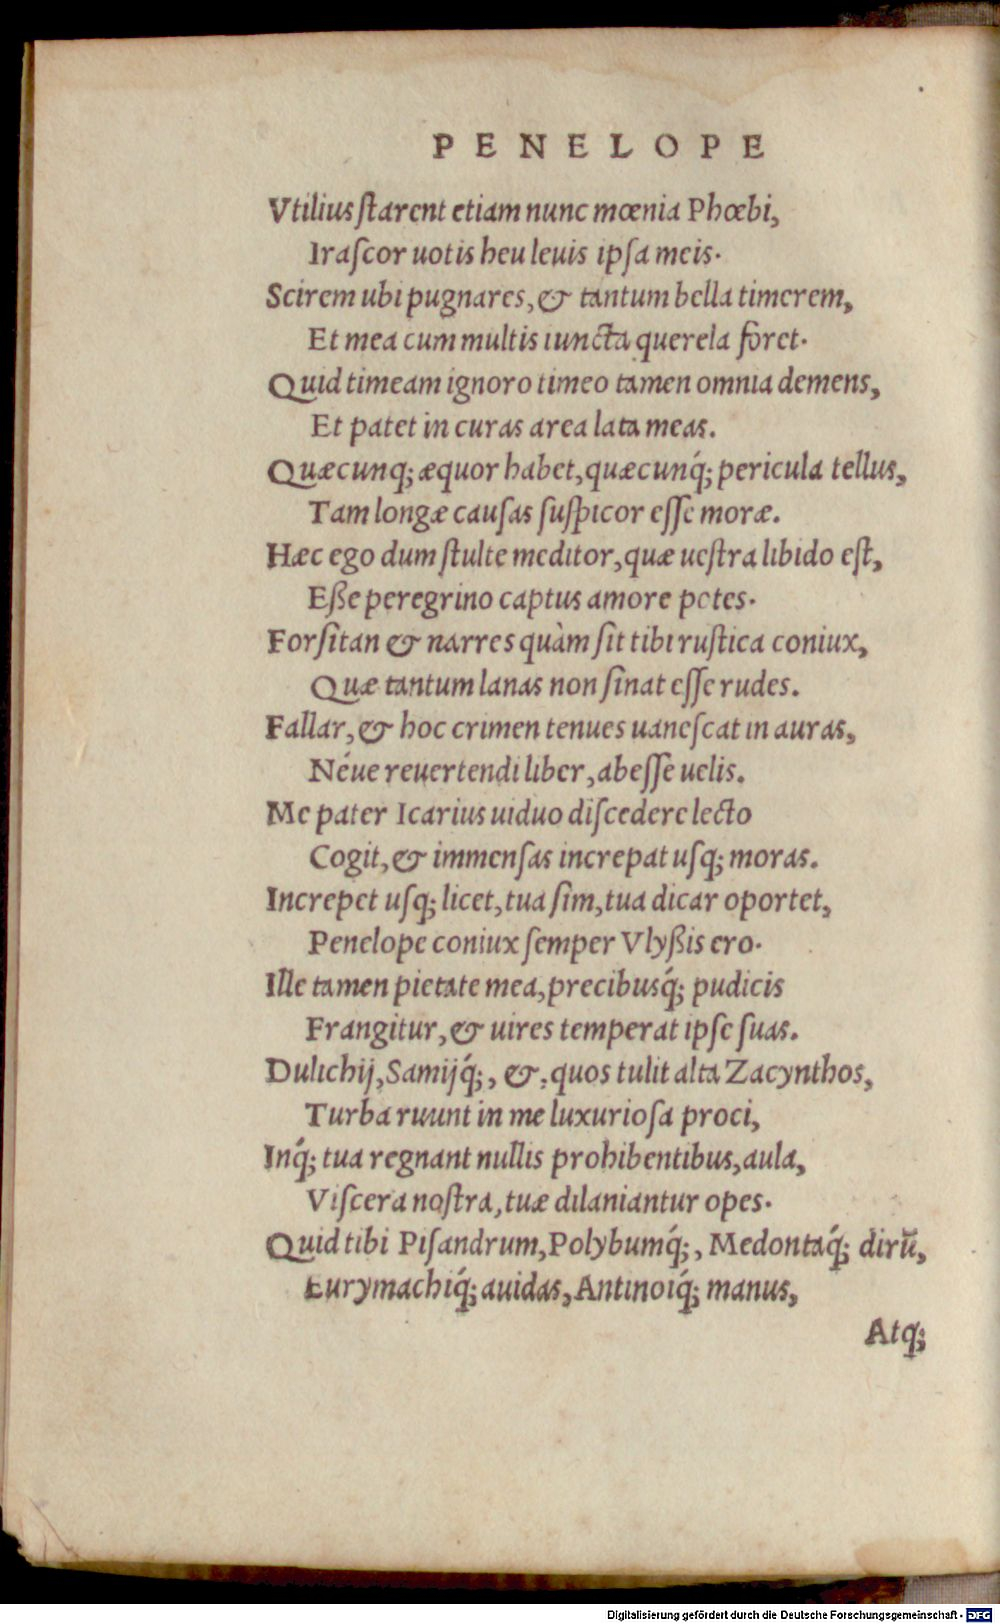 PENELOPE
Vtilius ſtarent etiam nunc mœnia Phœbi,
Iraſcor uotis heu leuis ipſa meis.
Scirem ubi pugnares, & tantum bella timerem,
Et mea cum multis iuncta querela foret.
Quid timeam ignoro timeo tamen omnia demens,
Et patet in curas area lata meas.
Quæcunq; æquor habet, quæcunq́; pericula tellus,
Tam longæ cauſas ſuſpicor eſſe moræ.
Hæc ego dum ſtulte meditor, quæ ueſtra libido eſt,
Eße peregrino captus amore potes.
Forſitan & narres quàm ſit tibi ruſtica coniux,
Quæ tantum lanas non ſinat eſſe rudes.
Fallar, & hoc crimen tenues uaneſcat in auras,
Néue reuertendi liber, abeſſe uelis.
Me pater Icarius uiduo diſcedere lecto
Cogit, & immenſas increpat uſq; moras.
Increpet uſq; licet, tua ſim, tua dicar oportet,
Penelope coniux ſemper Vlyßis ero.
Ille tamen pietate mea, precibusq́; pudicis
Frangitur, & uires temperat ipſe ſuas.
Dulichij, Samijq́;, &, quos tulit alta Zacynthos,
Turba ruunt in me luxurioſa proci,
Inq́; tua regnant nullis prohibentibus, aula,
Viſcera noſtra, tuæ dilaniantur opes.
Quid tibi Piſandrum, Polybumq́;, Medontaq́; dirũ,
Eurymachiq́; auidas, Antinoiq́; manus,
Atq;
Digitalisierung gefördert durch die Deutsche Forschungsgemeinschaft - DFG